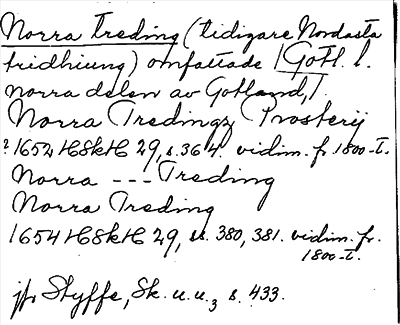 Norra Treding (tidigare Nordasta
tridhiung) omfattade / Gotl. l.
norra delen av Gotland, /.
Norra Tredingz Prosterij
? 1652 HSkH 29, s. 364. vidim. fr. 1800-t.
Norra --- Treding
Norra Treding
1654 HSkH 29, ss. 380, 381. vidim. fr.
1800-t.
jfr Styffe, Sk. u. u.3 s. 433.